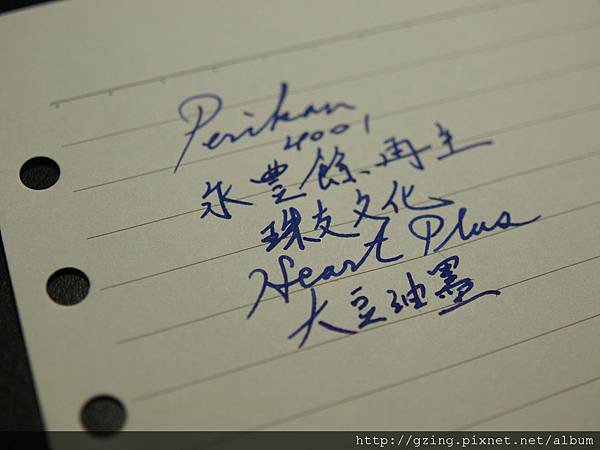 Perikan
4001
永豐餘、再生
珠友文化
Heart Plus
大豆油墨
http://gzing.pixnet.net/album